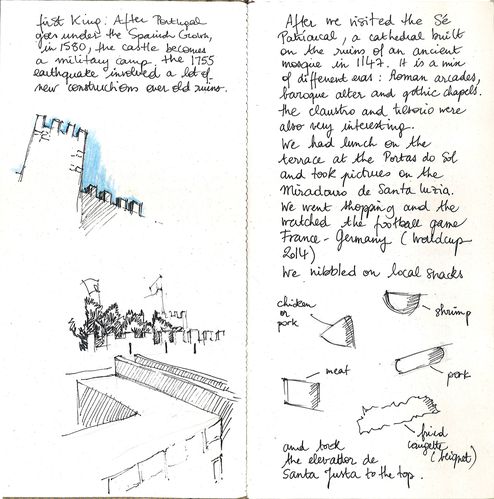 first King. After Portugal
goes under the Spanish Crown,
in 1580, the castle becomes
a military camp. the 1755
earthquake involved a lot of
new constructions over old ruins.
After we visited the Sé
Patriarcal, a cathedral built
on the ruins of an ancient
mosque in 1147. It is a mix
of different eras: Roman arcades,
baroque alter and gothic chapels.
the claustro and tesorio were
also very interesting.
We had lunch on the
terrace at the Portas do Sol
and took pictures on the
Miradouro de Santa Luzia.
We went shopping and the
watched the football game
France-Germany (Worldcup
2014)
We nibbled on local snacks
chicken
or
pork
shrimp
meat
pork
fried
courgette
(beignet)
and took
the elevattor de
Santa Justa to the top.